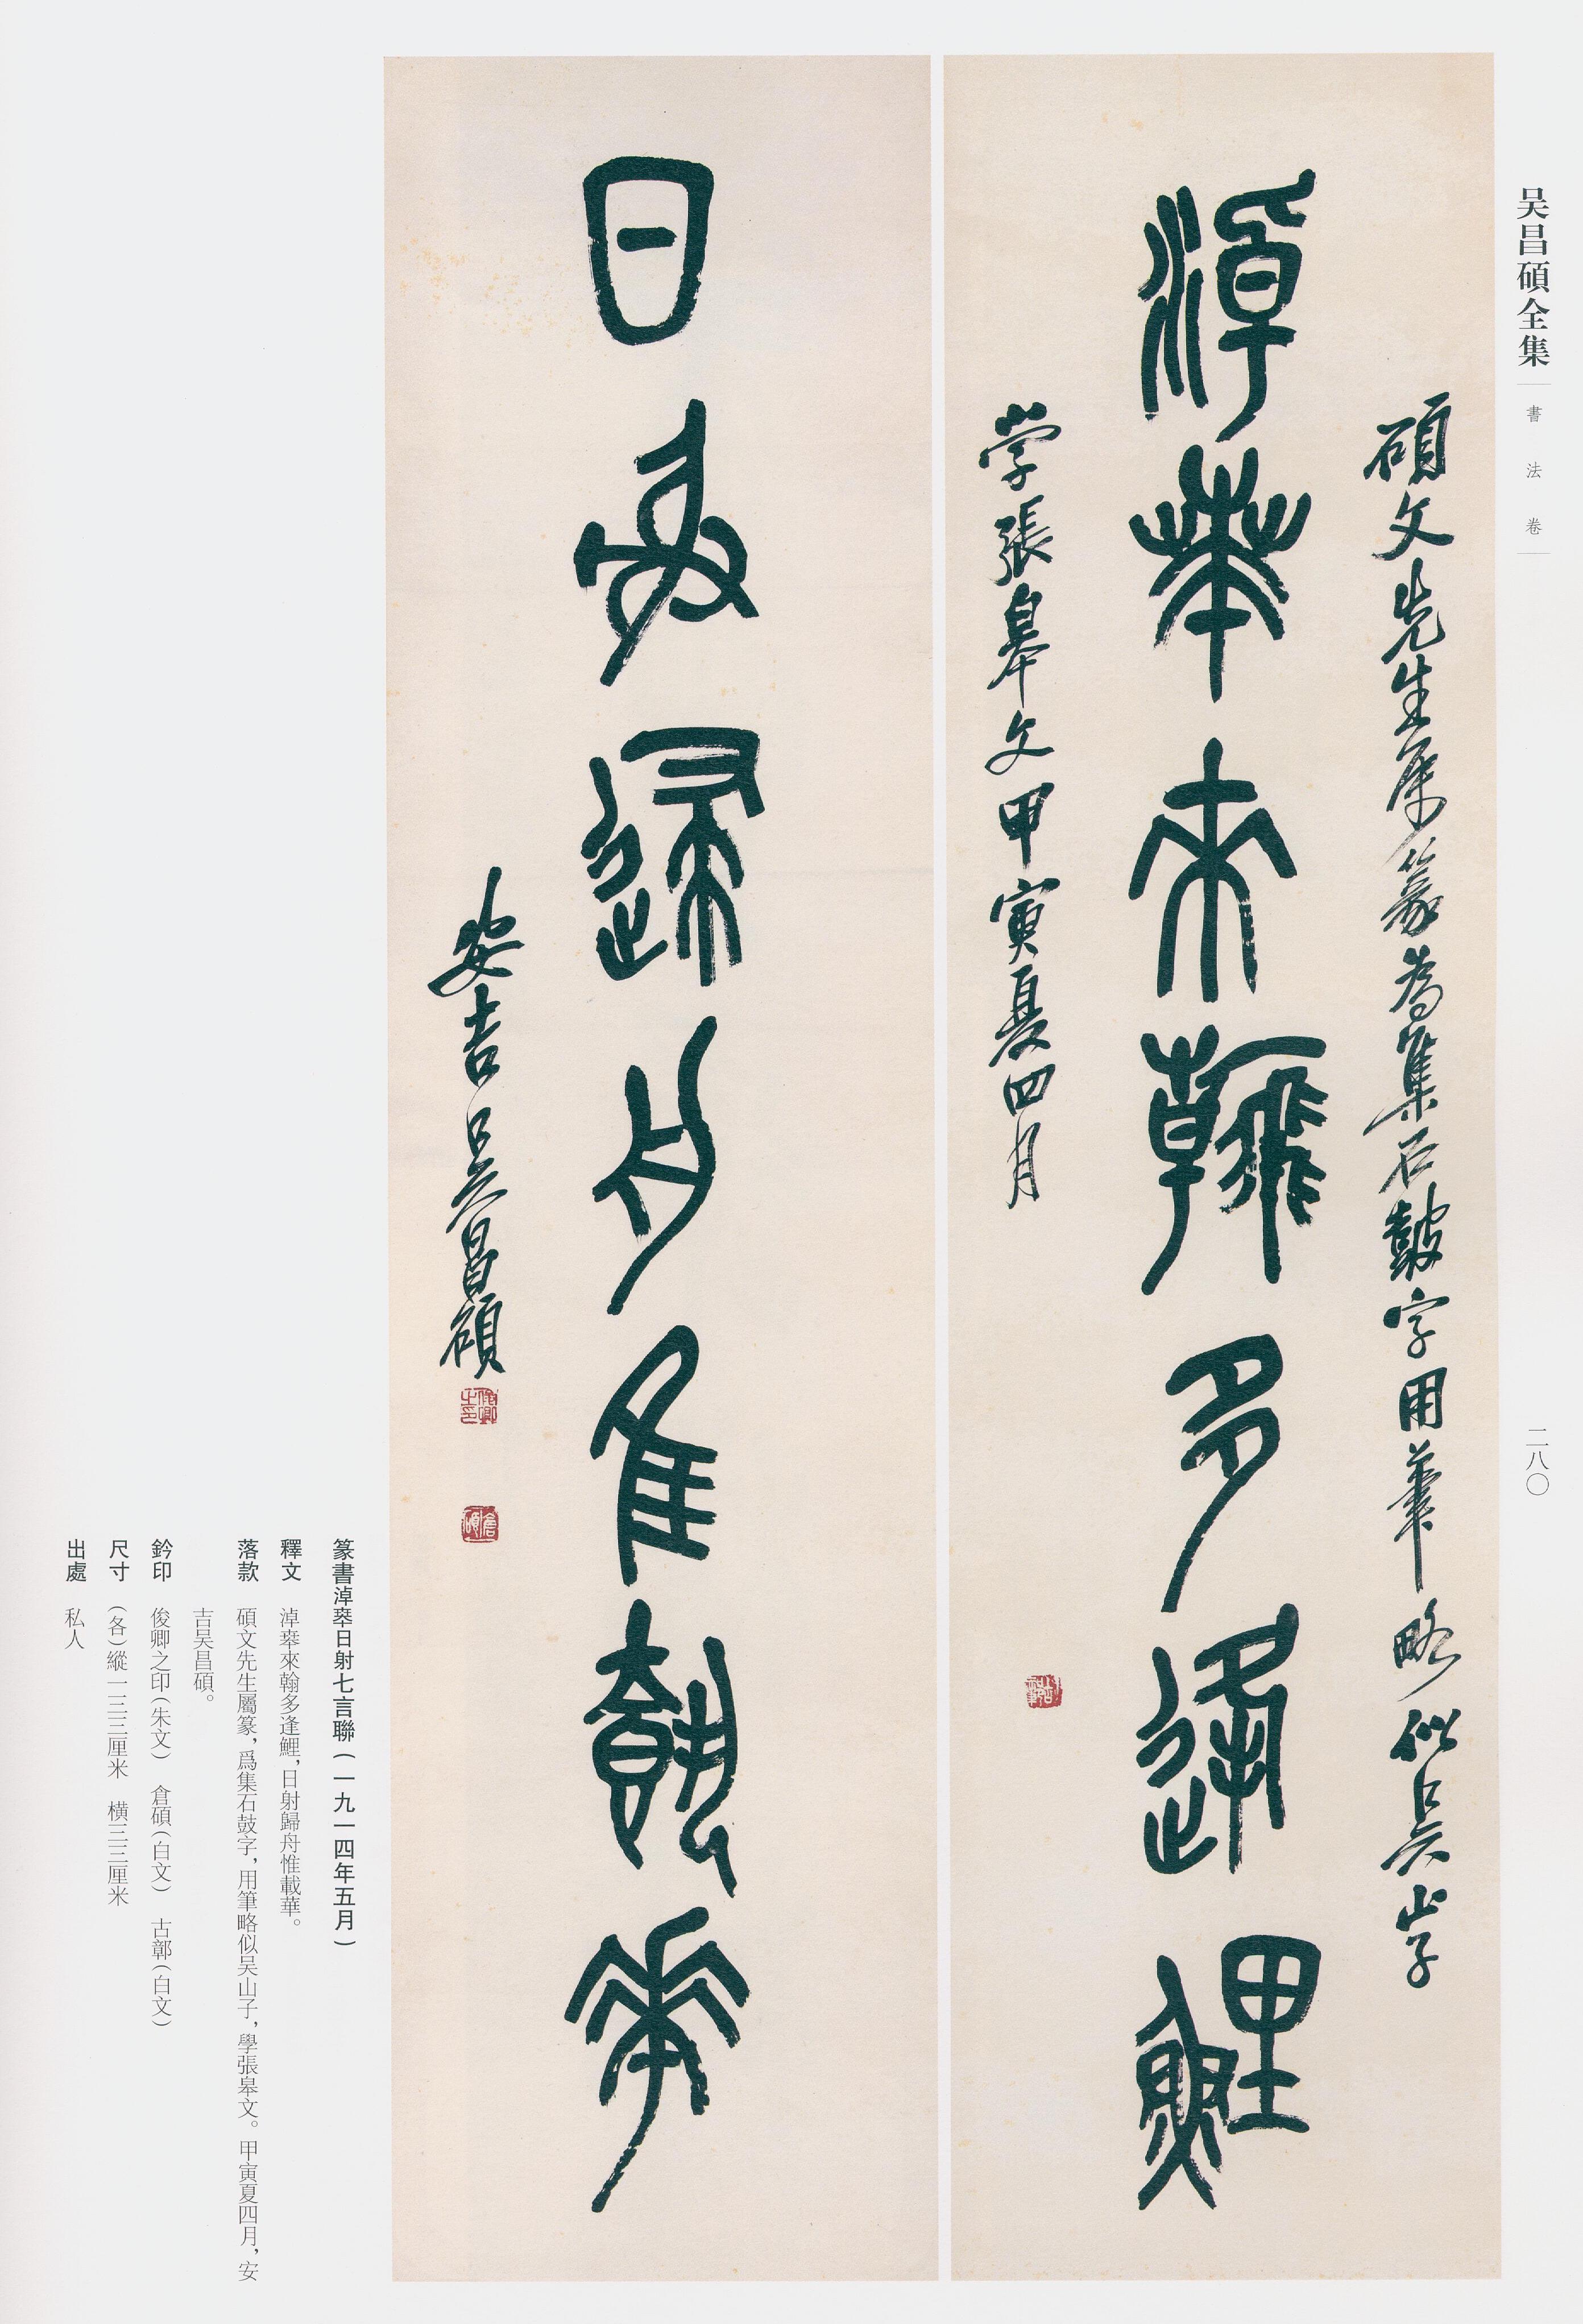 吴昌碩全集
書法卷
二八〇
碩文先生屬篆為集石鼓字用筆略似吳山子
淖𠦪來翰多逢鯉
學張皋文甲寅夏四月
日射歸舟惟載華
安吉吳昌碩
俊卿之印
倉碩
古鄣
篆書淖𠦪日射七言聯(一九一四年五月)
釋文 淖𠦪來翰多逢鯉,日射歸舟惟載華。
落款 碩文先生屬篆,爲集石鼓字,用筆略似吴山子,學張皋文。甲寅夏四月,安
吉吴昌碩。
鈐印 俊卿之印(朱文) 倉碩(白文) 古鄣(白文)
尺寸 (各)縱一三三厘米 横三三厘米
出處 私人